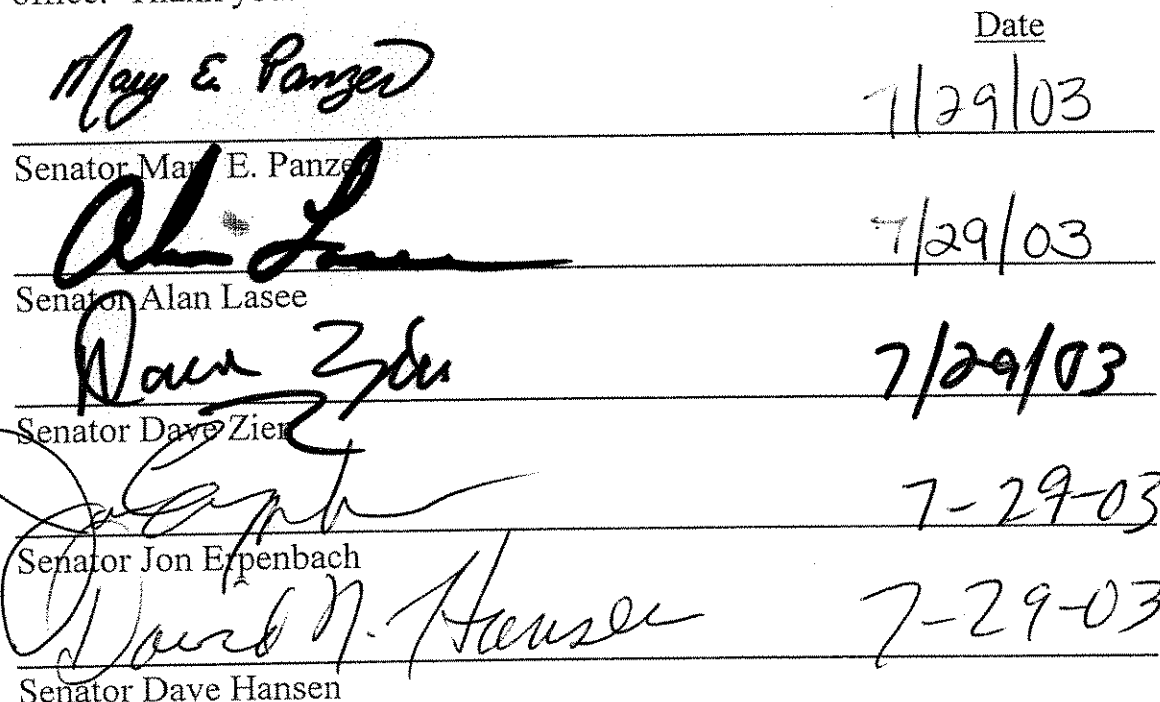 office. Thank you.
Date
Mary E. Panzer 7/29/03
Senator Mary E. Panzer
Alan Lasee 7/29/03
Senator Alan Lasee
Dave Zien 7/29/03
Senator Dave Zien
7-29-03
Senator Jon Erpenbach
David N. Hansen 7-29-03
Senator Dave Hansen